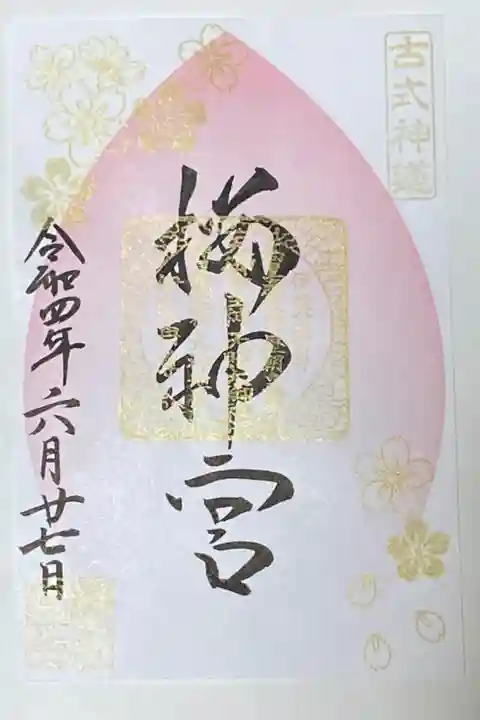 古式神道
櫻神宮
令和四年六月廿七日